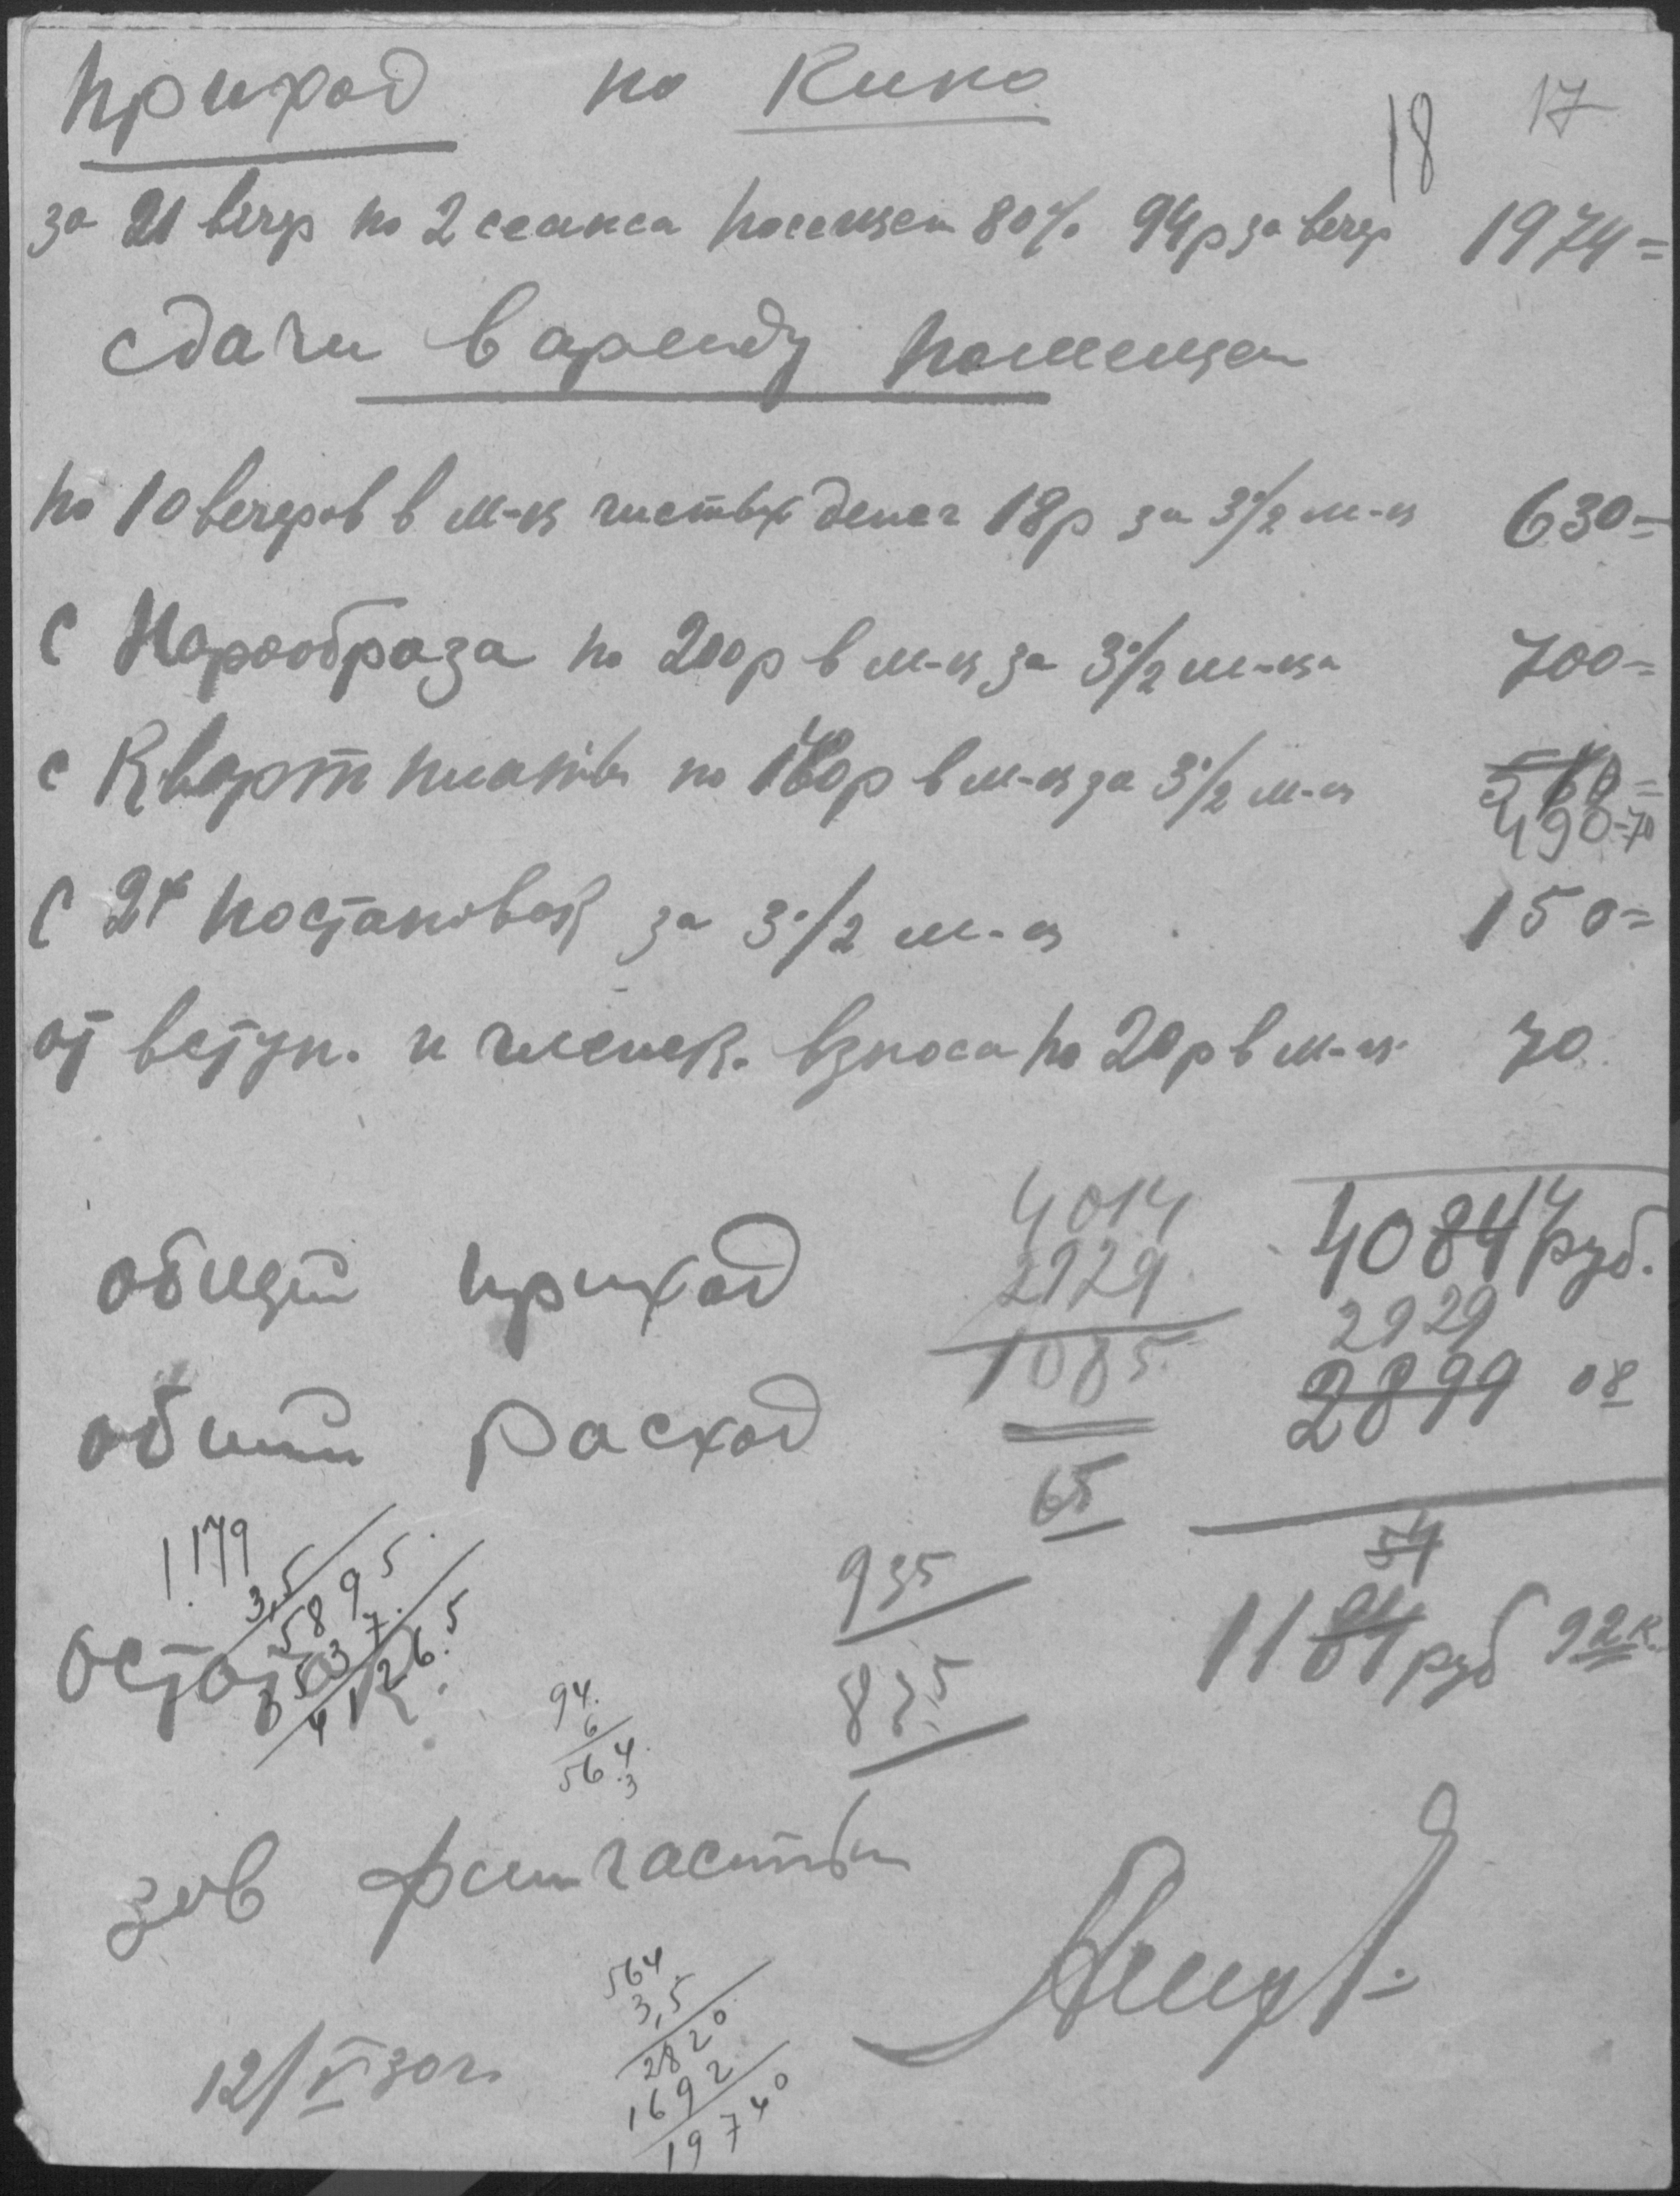 приход по Кино
18 17
за 21 вечер по 2 сеанса посещен 80% 94р за вечер 1974=
сдачи в аренду помещен
по 10 вечеров в м-ц чистых денег 18р за 3 1/2 м-ц 630=
с Наробраза по 200р в м-ц за 3 1/2 м-ца 700=
с Кварт платы по 140р в м-ц за 3 1/2 м-ц 560=
490-70
с 2х постановок за 3 1/2 м-ц 150=
от вступ. и членск. взноса по 20р в м-ц 70
4014 4084 14 руб.
общий приход 2929 2929
1085
общий расход 2899 08
65
1179
3,5
5895
3537
4126.5
935 54
остаток 1184 руб 92к.
835
94
6
564
3
зав фин частью
564
3,5
2820
1692
19740
12/V 30 г.